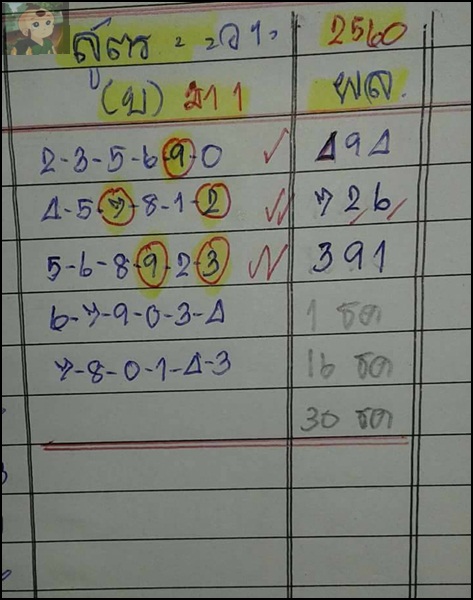 สูตร 2560
(บ) มา 1 ผล.
2-3-5-6-9-0 494
4-5-7-8-1-2 726
5-6-8-9-2-3 391
6-7-9-0-3-4 1 ธค
7-8-0-1-4-3 16 ธค
30 ธค